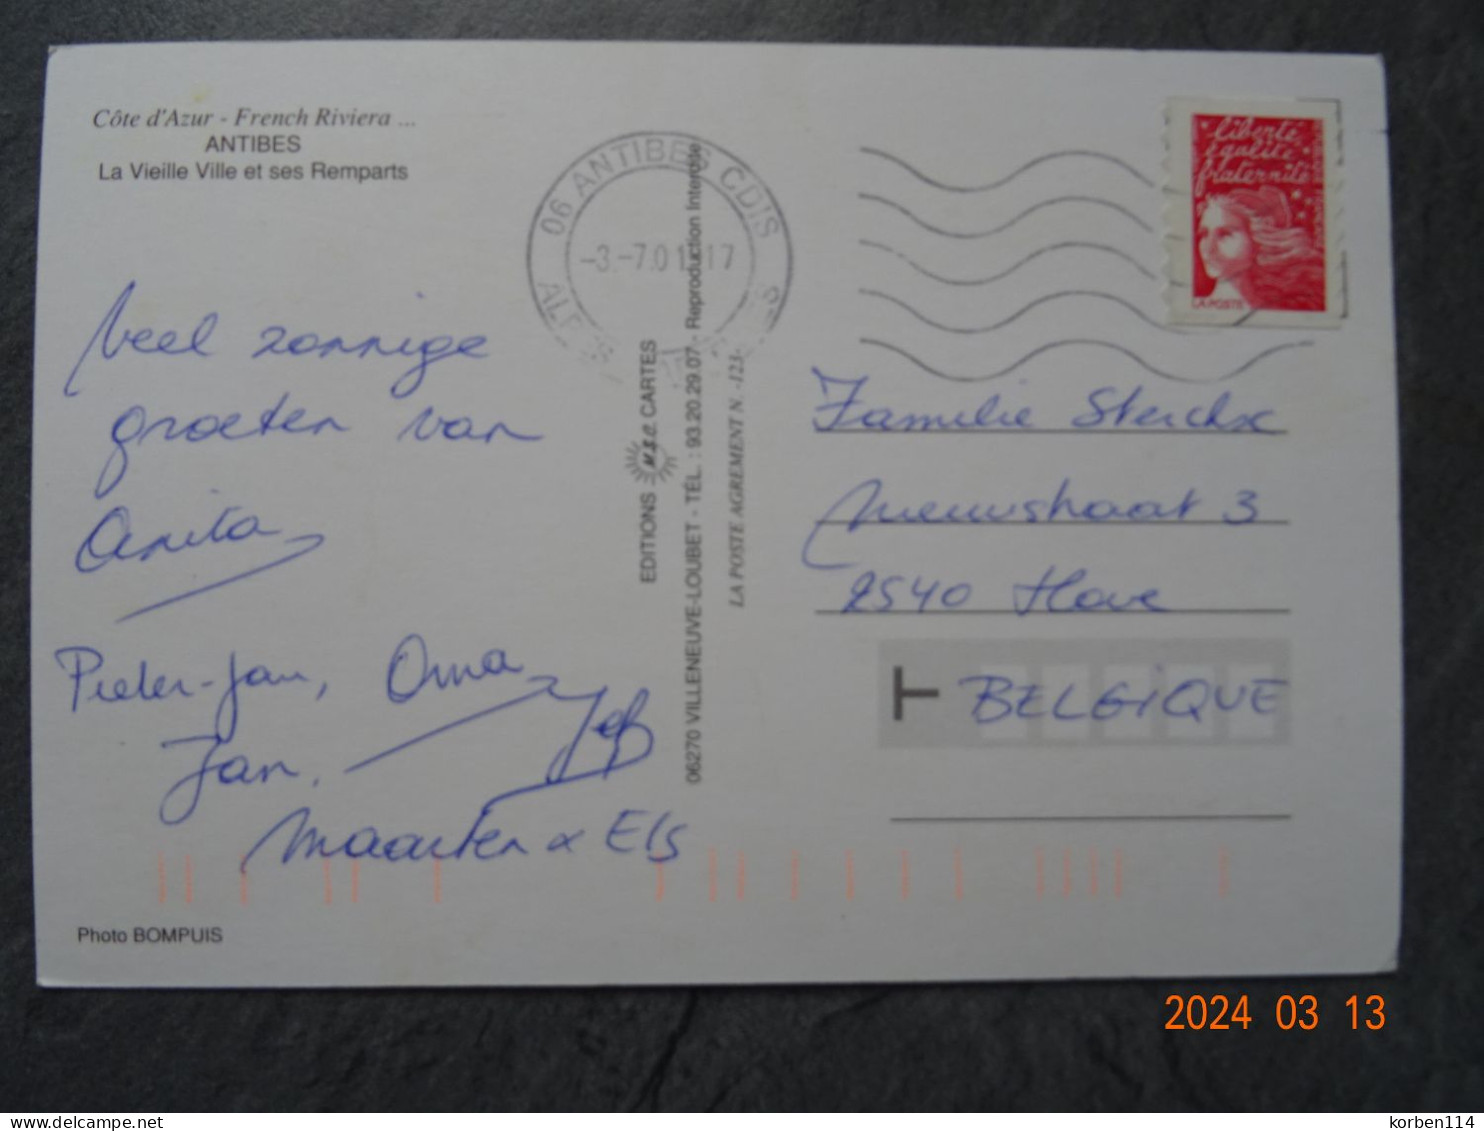 Côte d'Azur - French Riviera ...
ANTIBES
La Vieille Ville et ses Remparts
Veel zonnige
groeten van
Anita
Pieter-Jan, Oma
Jan, Jef
Maarten & Els
Photo BOMPUIS
06 ANTIBES CDIS
-3.-7.01 17
EDITIONS M.S.C. CARTES
06270 VILLENEUVE-LOUBET - TÉL. : 93.20.29.07 - Reproduction Interdite
LA POSTE AGREMENT N. -123-
liberté
égalité
fraternité
LA POSTE
Familie Sterckx
Nieuwstraat 3
2540 Hove
BELGIQUE
2024 03 13
delcampe.net
korben114